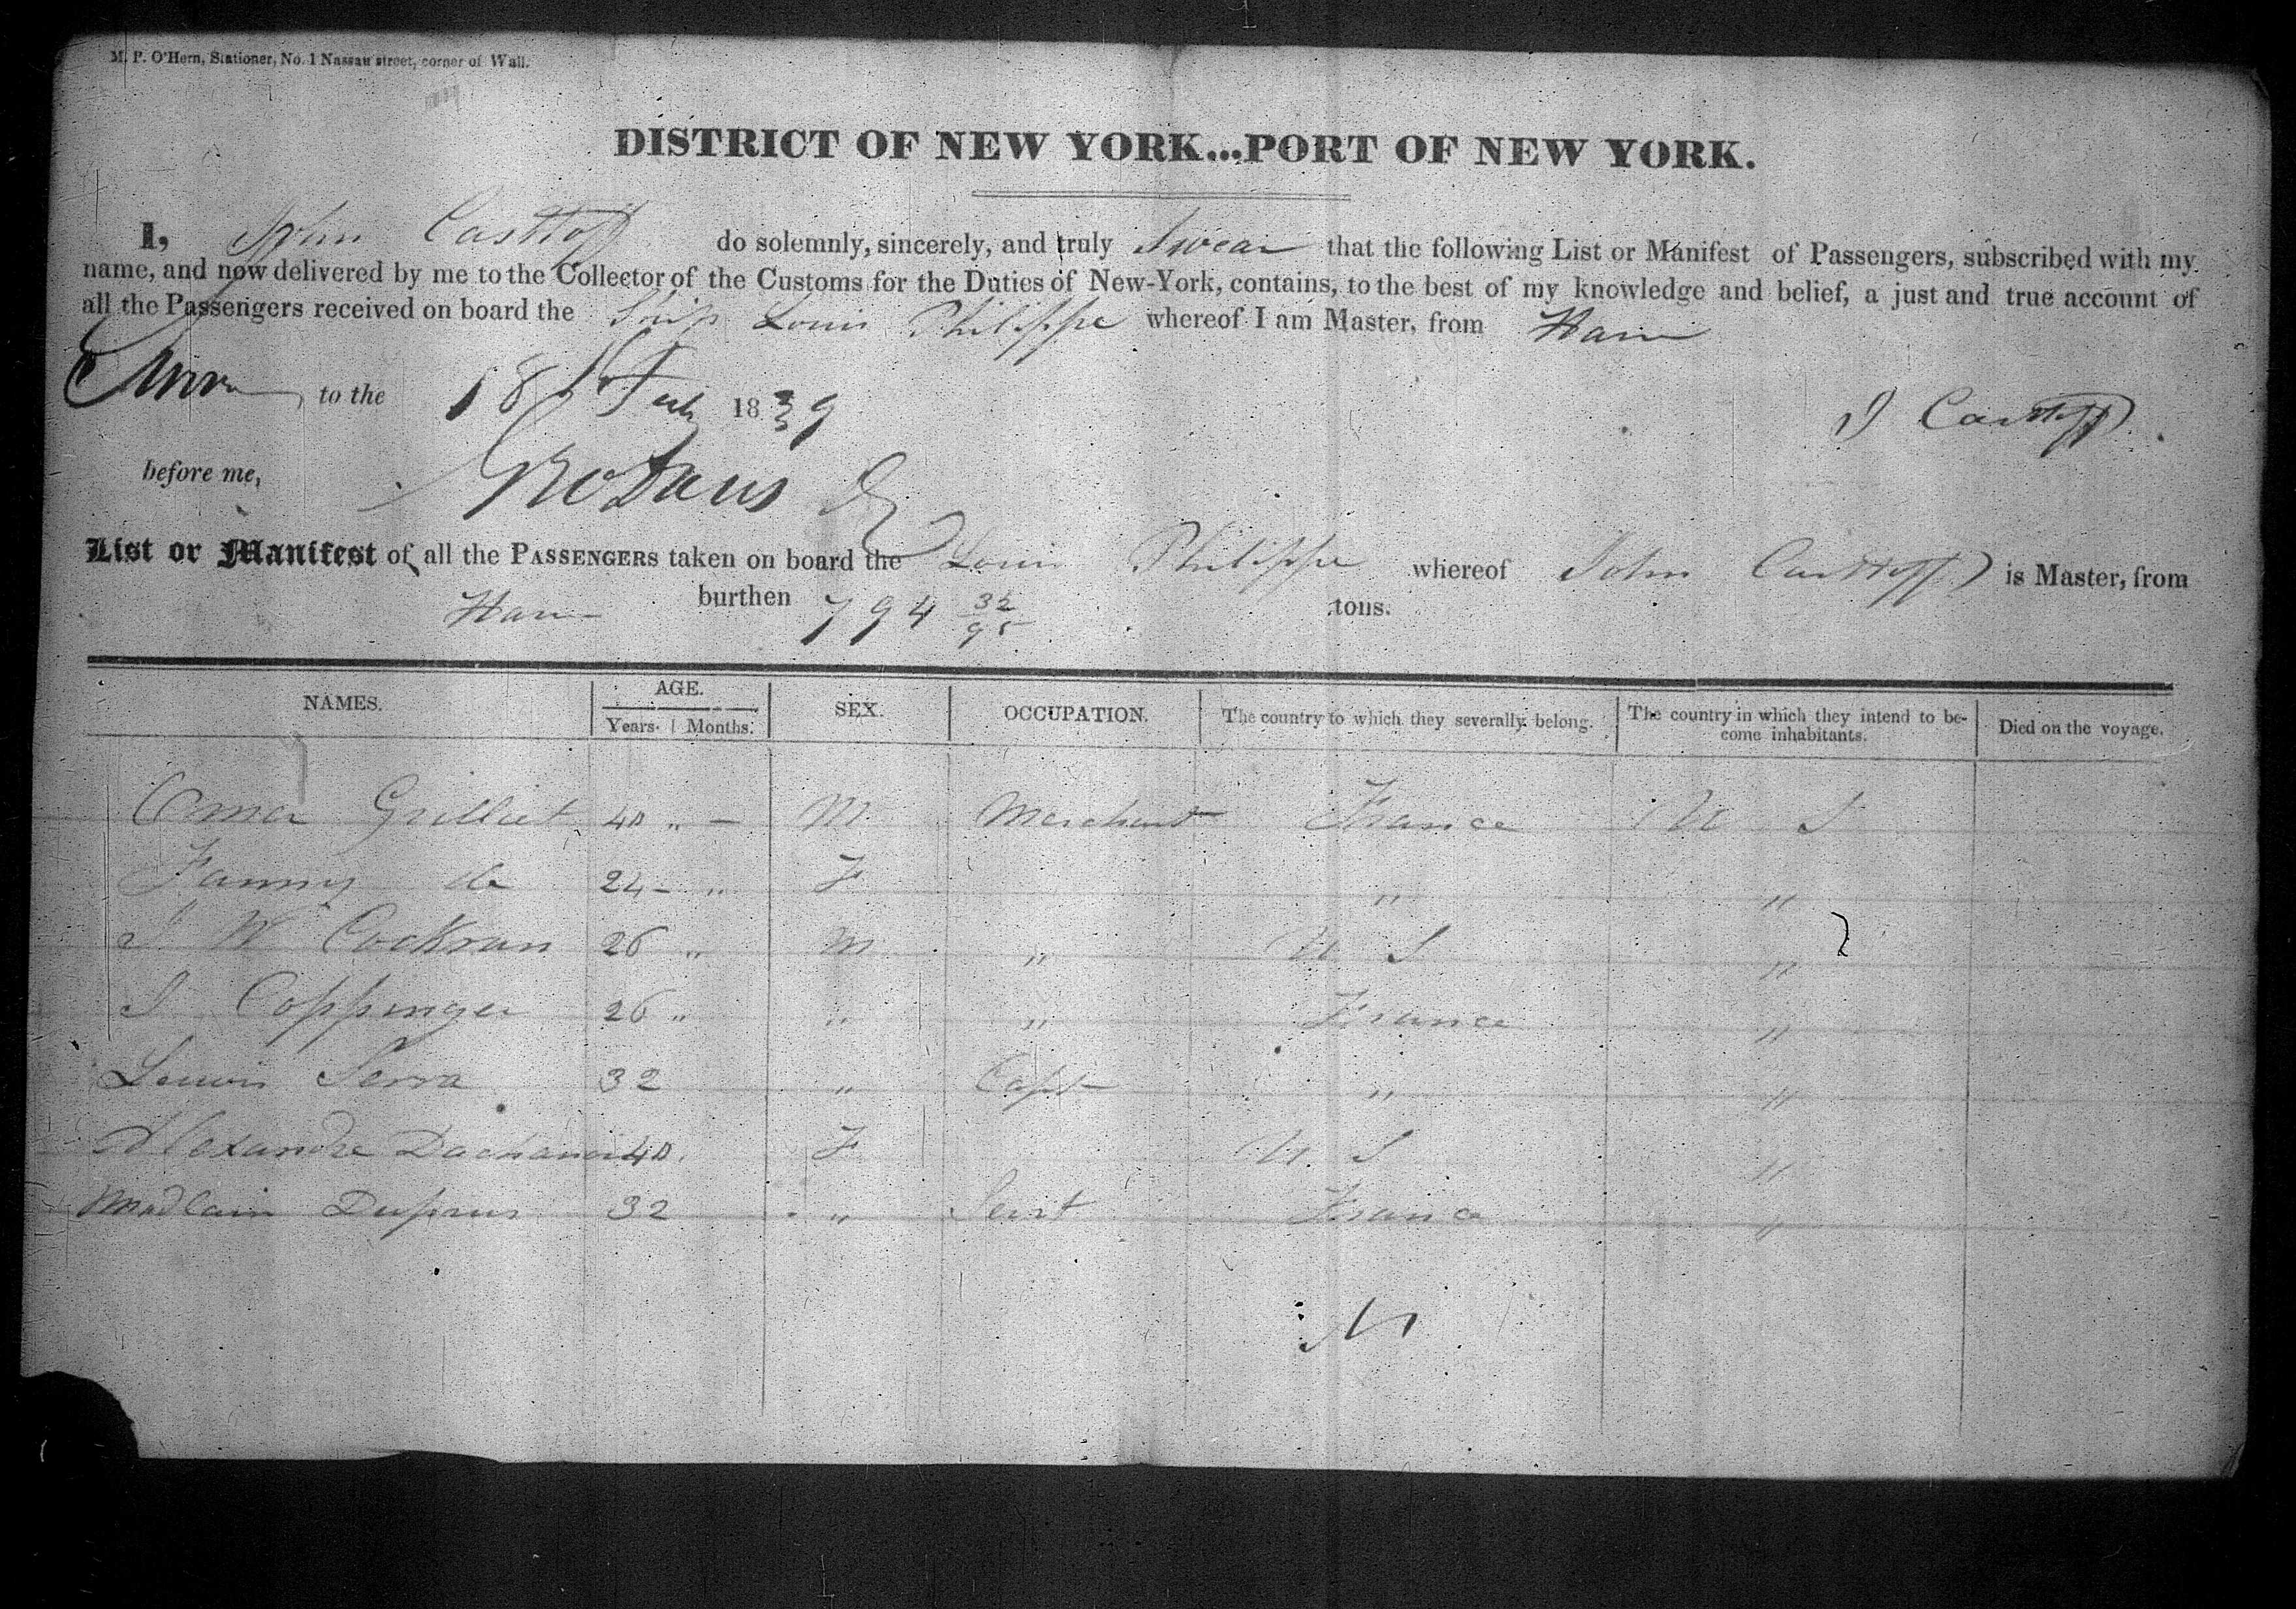 M. P. O'Hern, Stationer, No. 1 Nassau street, corner of Wall.
DISTRICT OF NEW YORK...PORT OF NEW YORK.
I, John Castoff do solemnly, sincerely, and truly Swear that the following List or Manifest of Passengers, subscribed with my
name, and now delivered by me to the Collector of the Customs for the Duties of New-York, contains, to the best of my knowledge and belief, a just and true account of
all the Passengers received on board the Ship Louis Philippe whereof I am Master, from Havre
Sworn to the 18 July 1839
J Castoff
before me,
List or Manifest of all the PASSENGERS taken on board the Louis Philippe whereof John Castoff is Master, from
Havre burthen 794 32/95 tons.
NAMES. AGE. SEX. OCCUPATION. The country to which they severally belong. The country in which they intend to be- Died on the voyage.
Years. Months. come inhabitants.
Grilliet 40 „ – M Merchant France U S
Fanny do 24 – „ F „ „
J W Cockran 26 „ M „ U S „
J Coppinger 26 „ „ „ France „
Louis Serra 32 „ Capt „ „
Alexandre 40 F U. S „
Madlain 32 „ Servt France „